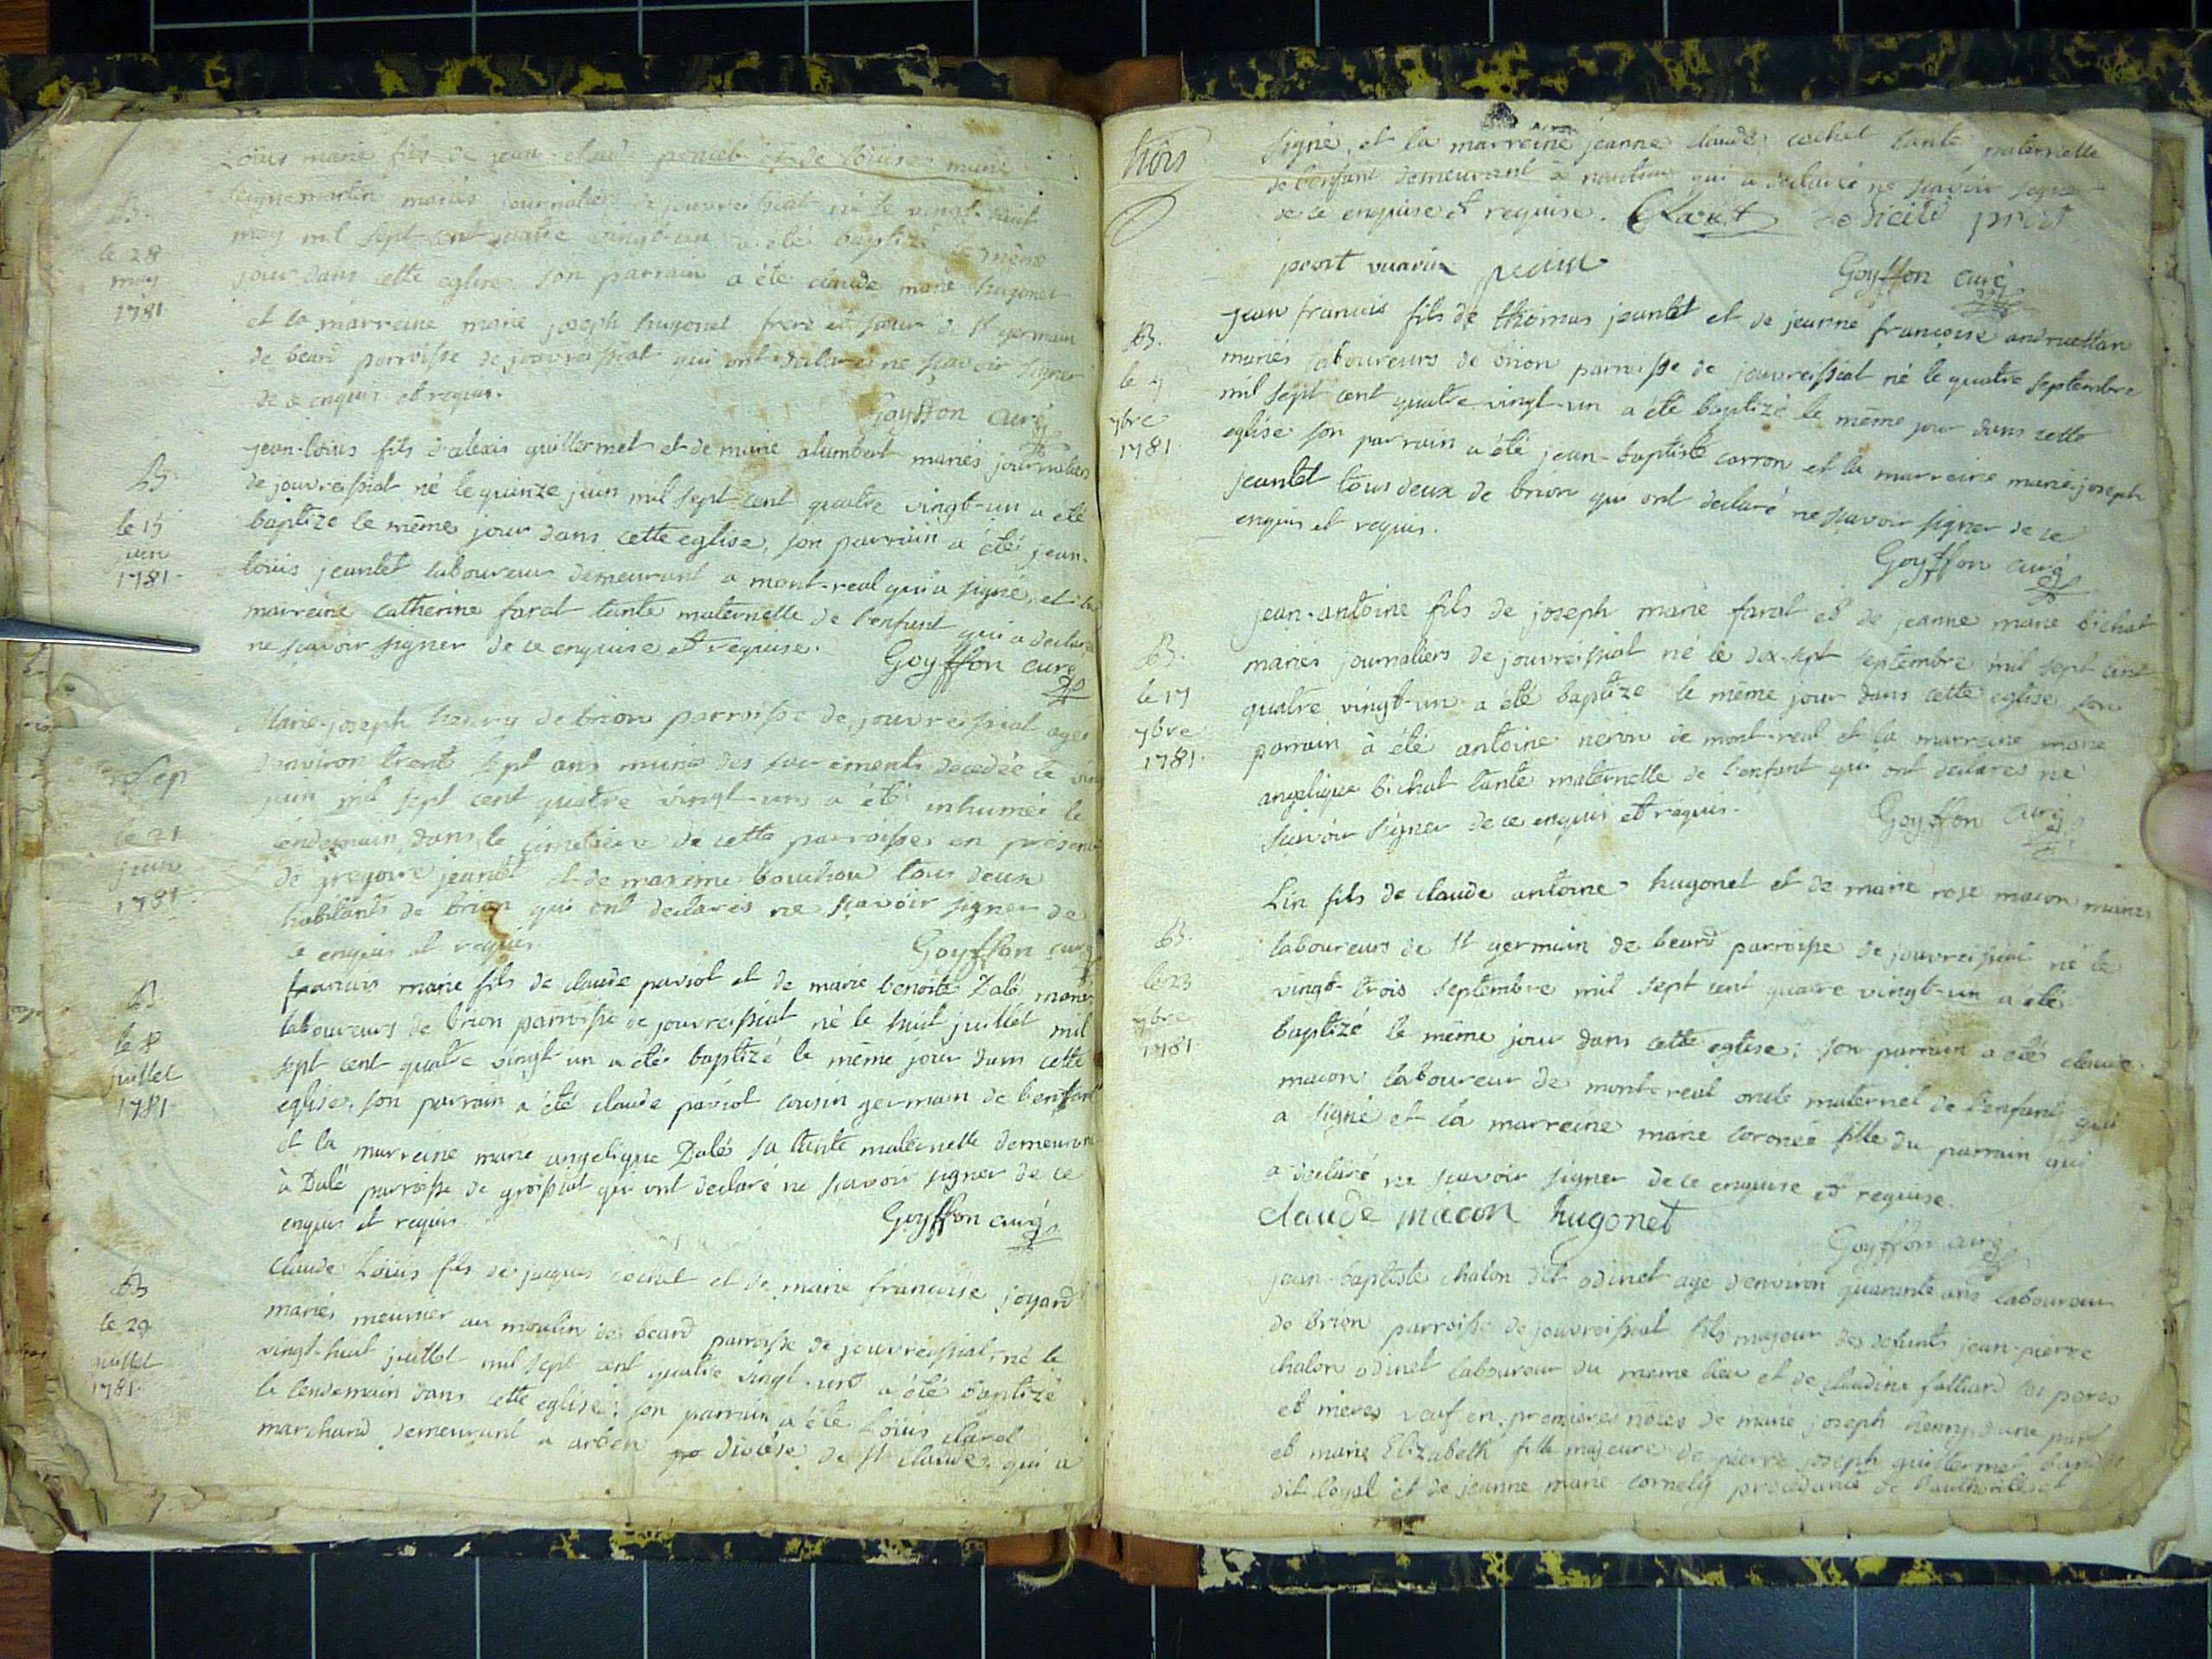 Loüis marie fils de jean claude et de loüise marie
martin mariés journaliers de jouvreissiat né le vingt huit
may mil sept cent quatre vingt-un a été baptizé le même
jour dans cette eglise, son parrain a été claude marie hugonet
et la marreine marie joseph hugonet frere et sœur de St germain
de beard parroisse de jouvreissiat qui ont declarés ne sçavoir signer
de ce enquis et requis.
Goyffon curé
B.
le 28
may
1781
jean-loüis fils d'alexis guillermet et de marie alumbert mariés journaliers
de jouvreissiat né le quinze juin mil sept cent quatre vingt-un a été
baptizé le même jour dans cette eglise, son parrain a été jean-
loüis jeantet laboureur demeurant a mont-real qui a signé, et la
marreine catherine farat tante maternelle de l'enfant qui a declaré
ne sçavoir signer de ce enquise et requise.
Goyffon curé
B.
le 15
juin
1781
Marie-joseph henry de brion parroisse de jouvreissiat agée
d'environ trente sept ans munie des sacrements decedée le
juin mil sept cent quatre vingt-un a été inhumée le
lendemain dans le cimetiere de cette parroisse en présence
de gregoire jeantet et de maxime bouchou tous deux
habitants de brion qui ont declarés ne sçavoir signer de
ce enquis et requis
Goyffon curé
Sep
le 21
juin
1781
francois marie fils de claude paviot et de marie benoite Dalé mariés
laboureurs de brion parroisse de jouvreissiat né le huit juillet mil
sept cent quatre vingt-un a été baptizé le même jour dans cette
eglise, son parrain a été claude paviot cousin germain de l'enfant
et la marreine marie angelique Dalé sa tante maternelle demeurant
à Dalé parroisse de groissiat qui ont declaré ne sçavoir signer de ce
enquis et requis
Goyffon curé
B
le 8
juillet
1781
Claude Loüis fils de jacques cochet et de marie francoise joyard
mariés meunier au moulin de beard parroisse de jouvreissiat, né le
vingt-huit juillet mil sept cent quatre vingt-un a été baptizé
le lendemain dans cette eglise; son parrain a été Loüis claret
marchand demeurant a arben diocése de St claude, qui a
B
le 29
juillet
1781
trois
signé, et la marreine jeanne claude cochet tante paternelle
de l'enfant demeurant à qui a declaré ne sçavoir signer
de ce enquise et requise. Claret
Goyffon curé
jean francois fils de thomas jeantet et de jeanne francoise andruettan
mariés laboureurs de brion parroisse de jouvreissiat né le quatre septembre
mil sept cent quatre vingt-un a été baptizé le même jour dans cette
eglise son parrain a été jean-baptiste carron et la marreine marie-joseph
jeantet tous deux de brion qui ont declaré ne sçavoir signer de ce
enquis et requis.
Goyffon curé
B.
le 4
7bre
1781
jean-antoine fils de joseph marie farat et de jeanne marie bichat
mariés journaliers de jouvreissiat né le dix-sept septembre mil sept cent
quatre vingt-un a été baptizé le même jour dans cette eglise son
parrain à été antoine neron de mont-real et la marreine marie
angelique bichat tante maternelle de l'enfant qui ont declarés ne
sçavoir signer de ce enquis et requis.
Goyffon curé
B.
le 17
7bre
1781
Lin fils de claude antoine hugonet et de marie rose macon mariés
laboureurs de St germain de beard parroisse de jouvreissiat né le
vingt-trois septembre mil sept cent quatre vingt-un a été
baptizé le même jour dans cette eglise; son parrain a été claude
macon laboureur de mont-real oncle maternel de l'enfant qui
a signé et la marreine marie coronée fille du parrain qui
a declaré ne sçavoir signer de ce enquise et requise.
claude macon hugonet
Goyffon curé
B.
le 23
7bre
1781
jean-baptiste chalon dit odinet agé d'environ quarante ans laboureur
de brion parroisse de jouvreissiat fils majeur des defunts jean-pierre
chalon odinet laboureur du meme lieu et de claudine falliard ses peres
et meres veuf en premieres nôces de marie joseph henry d'une part
et marie Elizabeth fille majeure de pierre joseph guillermet
dit loyal et de jeanne marie cornely procedante de l'authorité et